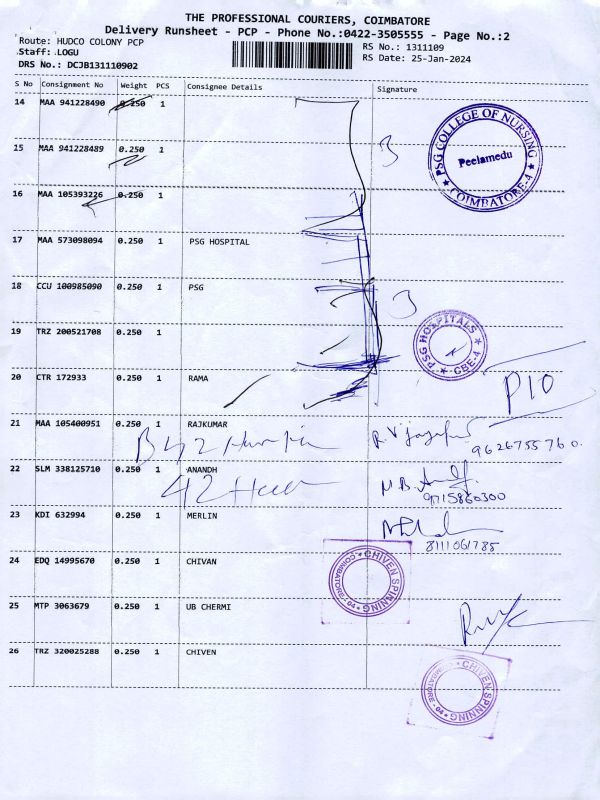 THE PROFESSIONAL COURIERS, COIMBATORE
Delivery Runsheet - PCP - Phone No.:0422-3505555 - Page No.:2
Route: HUDCO COLONY PCP
RS No.: 1311109
Staff: LOGU
RS Date: 25-Jan-2024
DRS No.: DCJB131110902
S No Consignment No Weight PCS Consignee Details Signature
14 MAA 941228490 0.250 1
PSG COLLEGE OF NURSING
Peelamedu
COIMBATORE-4
15 MAA 941228489 0.250 1
3
16 MAA 105393226 0.250 1
17 MAA 573098094 0.250 1 PSG HOSPITAL
18 CCU 100985090 0.250 1 PSG
3
19 TRZ 200521708 0.250 1
PSG HOSPITALS
CBE-4
20 CTR 172933 0.250 1 RAMA
P10
21 MAA 105400951 0.250 1 RAJKUMAR
9626755760
22 SLM 338125710 0.250 1 ANANDH
42
9715860300
23 KDI 632994 0.250 1 MERLIN
8111061785
24 EDQ 14995670 0.250 1 CHIVAN
CHIVEN SPINNING
COIMBATORE-
25 MTP 3063679 0.250 1 UB CHERMI
26 TRZ 320025288 0.250 1 CHIVEN
CHIVEN SPINNING
COIMBATORE-